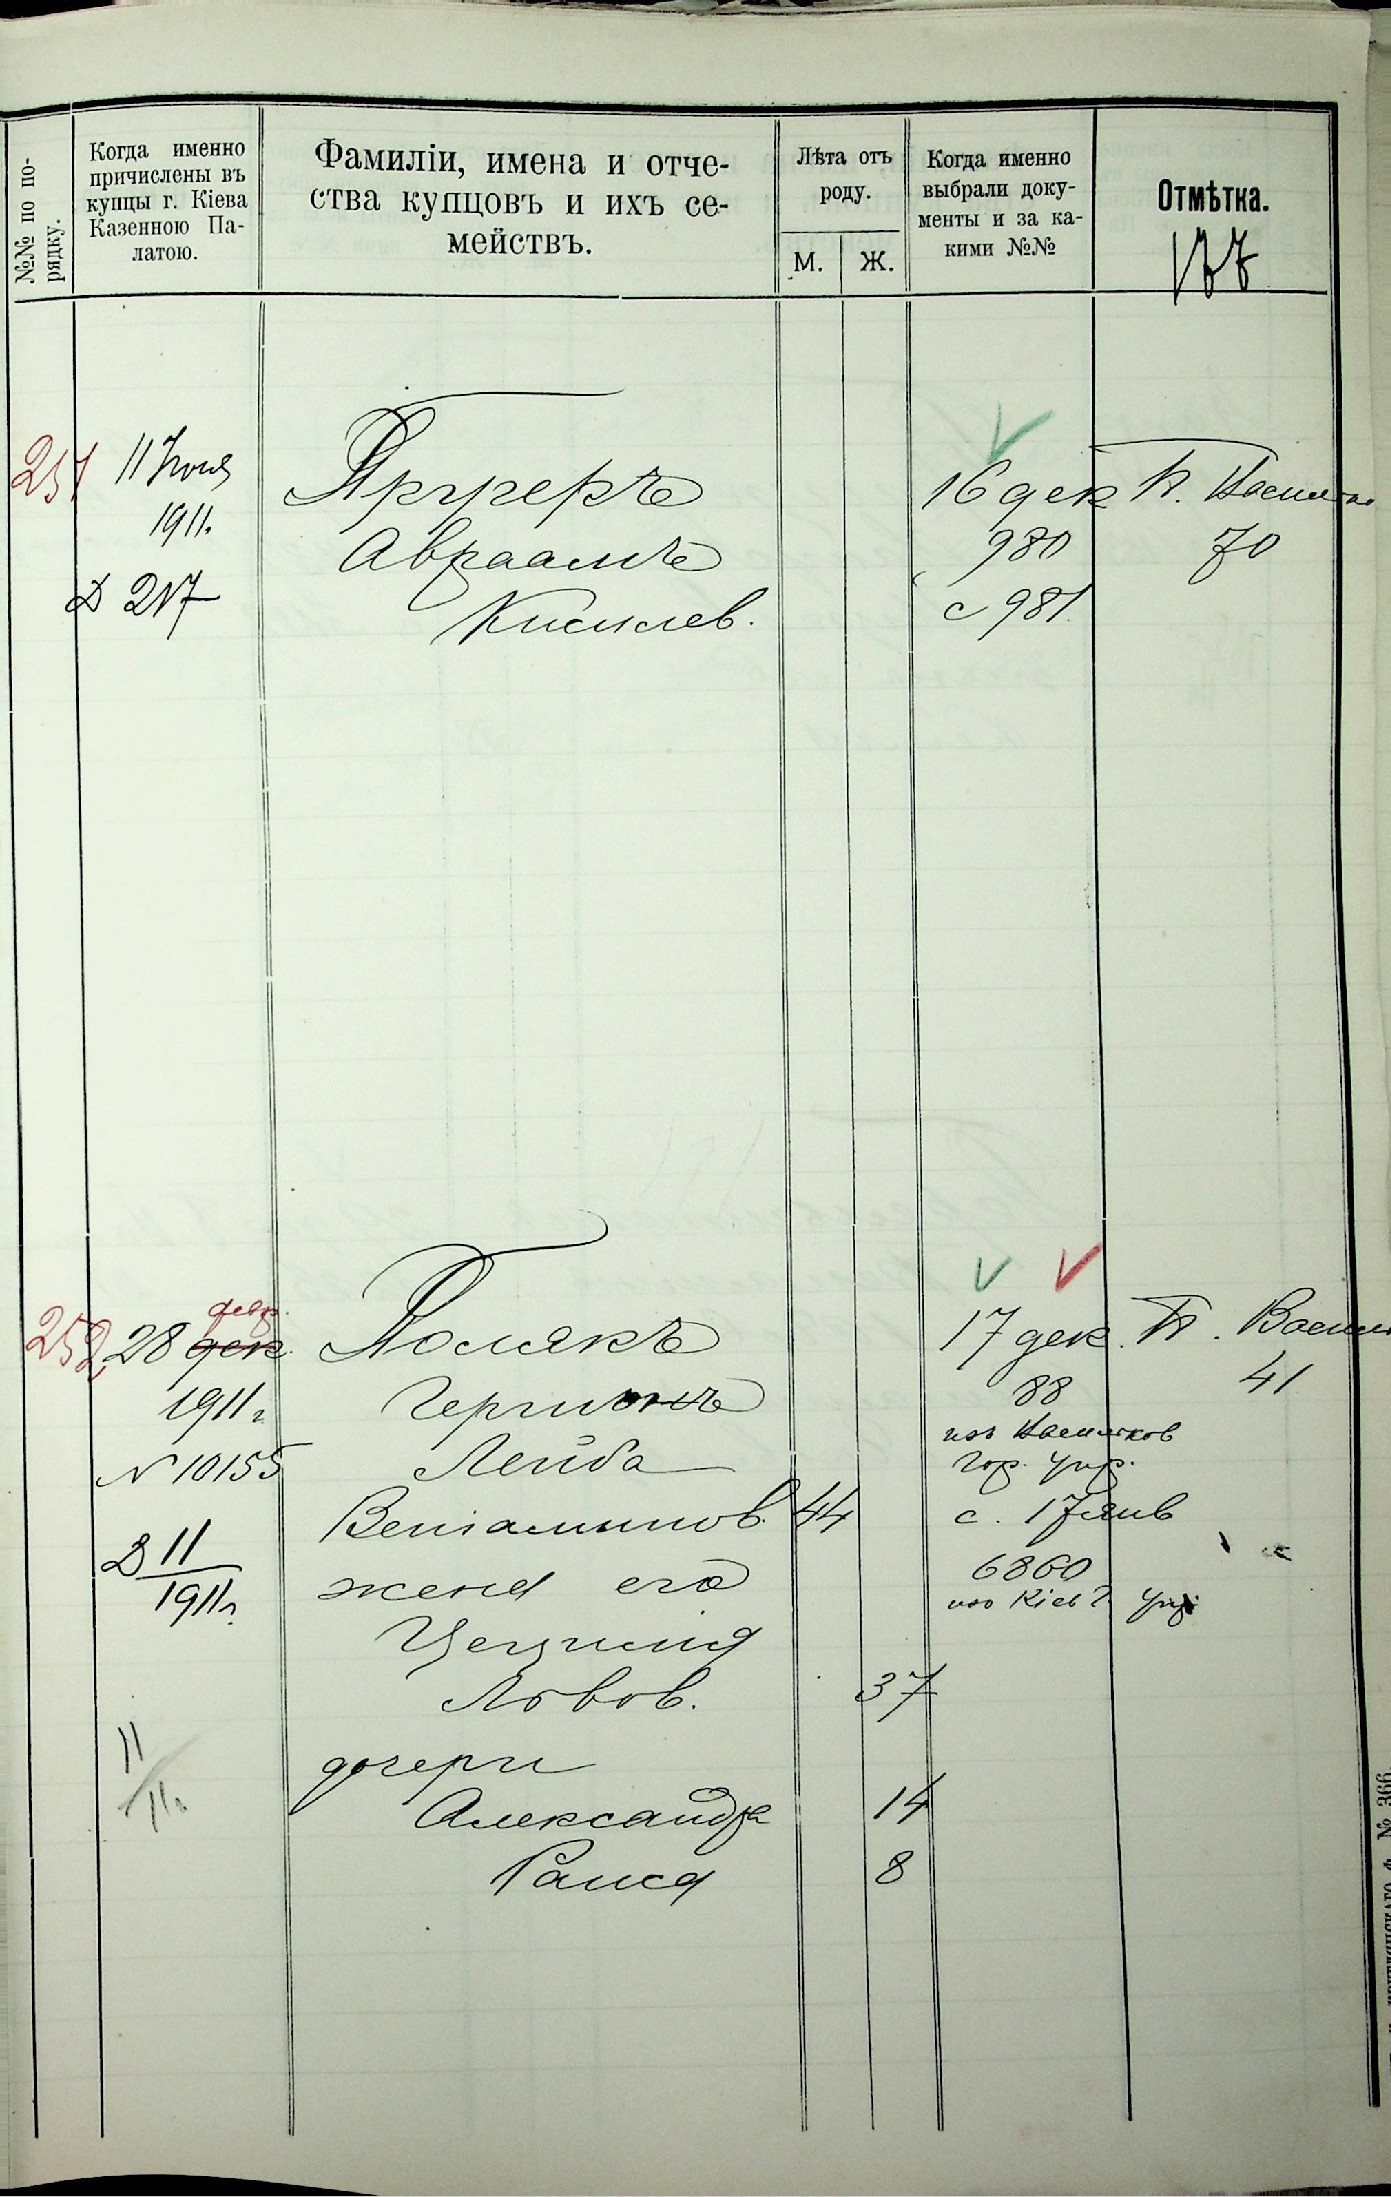 №№ по по-
рядку.
Когда именно
причислены въ
купцы г. Кіева
Казенною Па-
латою.
Фамиліи, имена и отче-
ства купцовъ и ихъ се-
мействъ.
Лѣта отъ
роду.
М.
Ж.
Когда именно
выбрали доку-
менты и за ка-
кими №№
Отмѣтка.
177
251
11
1911.
Д 217
Авраамъ
16 дек
980
с 981
П.
70
252
28 дек
февр.
1911 г
N 10155
Д 11
1911 г.
Полякъ
Лейба
Веніаминов. 44
жена его
Цецилія
Львов. 37
дочери
Александра 14
Раиса 8
11
11 г
17 дек.
88
изъ
Гор. Упр.
с. 17 янв
6860
изъ Кіев Г. Упр.
П.
41
№ 366.